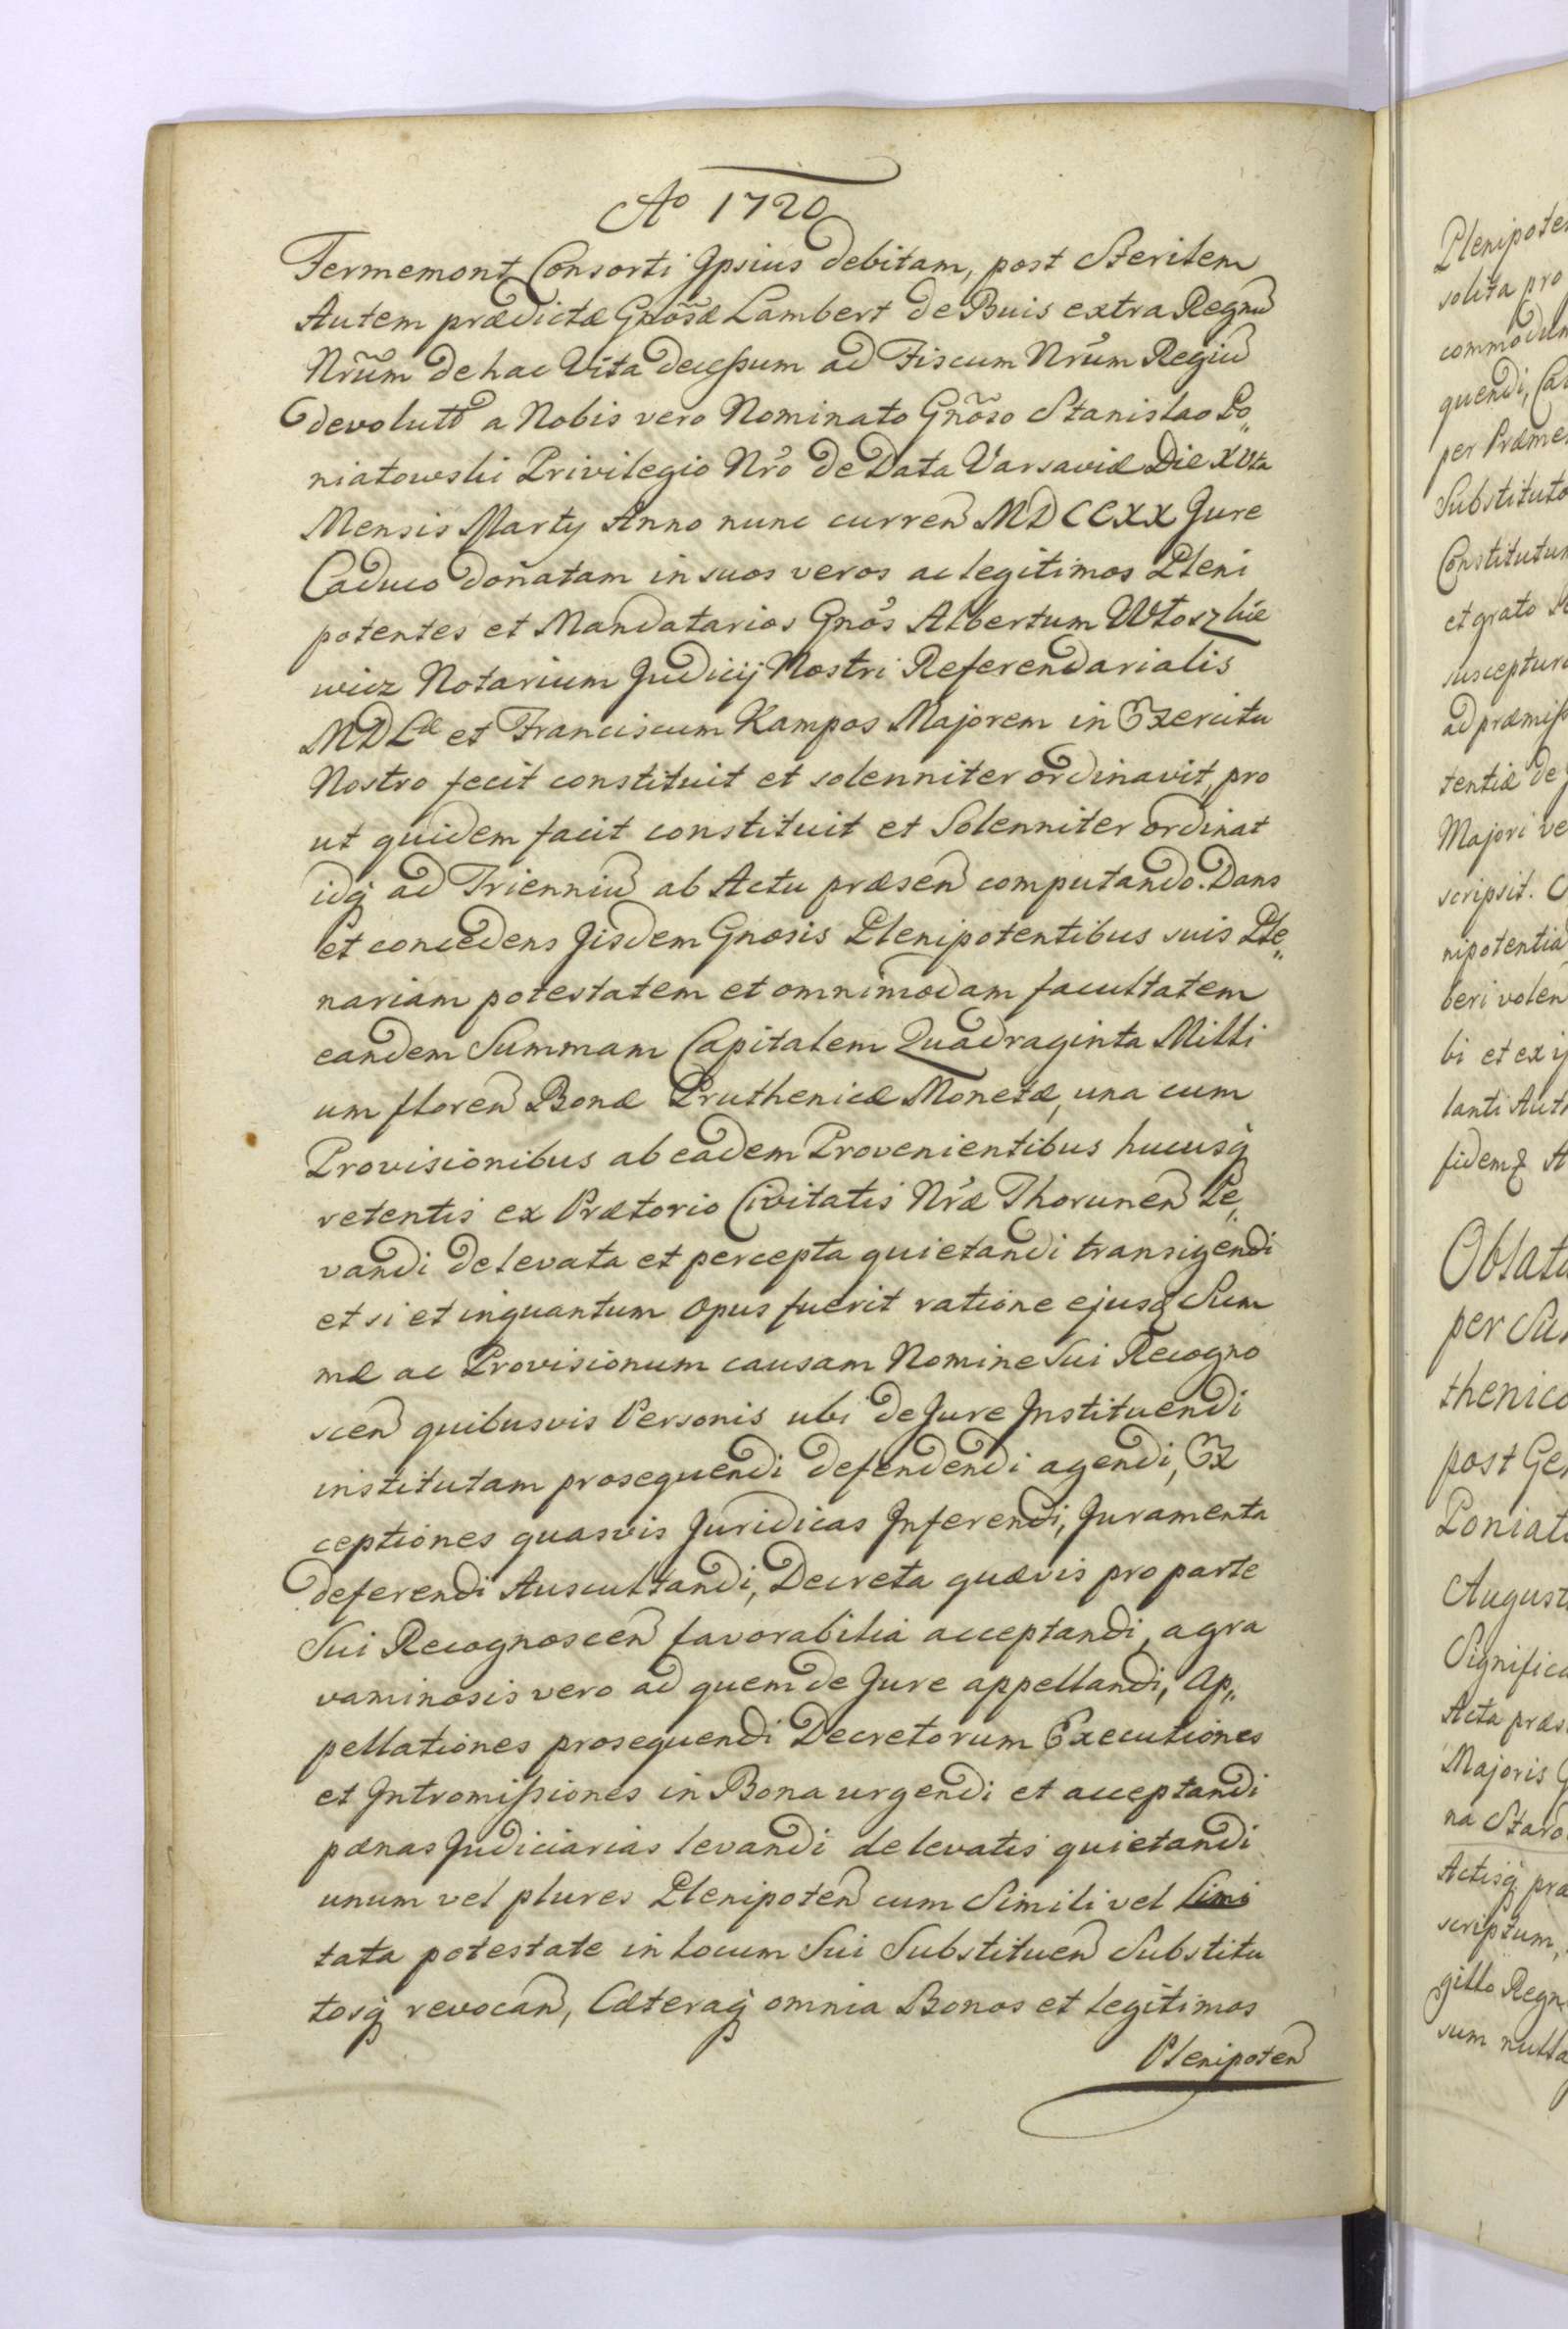 Ao 1720
Fermemont Consorti Ipsius debitam, post Sterilem
Autem prædictæ Gnosæ Lambert de Buis extra Regnu
Nrum de hac Vita decessum ad Fiscum Nrum Regiu
devolut a Nobis vero Nominato Gnoso Stanislao Po„
niatowski Privilegio Nro de Data Varsaviæ Die XVta
Mensis Martij Anno nunc curren MDCCXX Jure
Caduco donatam in suos veros ac legitimos Pleni
potentes et Mandatarios Gnos Albertum Włoszkie
wicz Notarium Judicij Nostri Referendarialis
MDLæ et Franciscum Kampos Majorem in Exercitu
Nostro fecit constituit et solenniter ordinavit, pro
ut quidem facit constituit et Solenniter ordinat
idq ad Trienniu ab Actu præsen computando. Dans
et concedens Jisdem Gnosis Plenipotentibus suis Ple„
nariam potestatem et omnimodam facultatem
eandem Summam Capitalem Quadraginta Milli
um floren Bonæ Pruthenicæ Monetæ, una cum
Provisionibus ab eadem Provenientibus hucusq
retentis ex Prætorio Civitatis Nræ Thorunen Le„
vandi de levata et percepta quietandi transigendi
et si et inquantum opus fuerit ratione ejusd Sum
mæ ac Provisionum causam Nomine Sui Recogno
scen quibusvis Personis ubi de Jure Instituendi
institutam prosequendi defendendi agendi, Ex
ceptiones quasvis Juridicas Inferendi, Juramenta
deferendi Auscultandi, Decreta quævis pro parte
Sui Recognoscen favorabilia acceptandi, agra
vaminosis vero ad quem de Jure appellandi, Ap„
pellationes prosequendi Decretorum Executiones
et Intromissiones in Bona urgendi et acceptandi
pænas Judiciarias levandi de levatis quietandi
unum vel plures Plenipoten cum Simili vel Limi
tata potestate in locum Sui Substituen Substitu
tosq revocan, Cæteraq omnia Bonos et legitimos
Plenipoten
Plenipote
solita pro
quendi, Ca
per Præme
Substituto
Constitutum
et grato
susceptur
ad præmiss
tentiæ de
Majori ve
scripsit.
nipotentia
beri volen
bi et ex
lanti Aut
Oblat
per Su
thenic
post Ge
Poniat
August
Signific
Acta præs
Majoris
na Staro
Actisq pra
scriptum,
gillo Regn
sum nulla